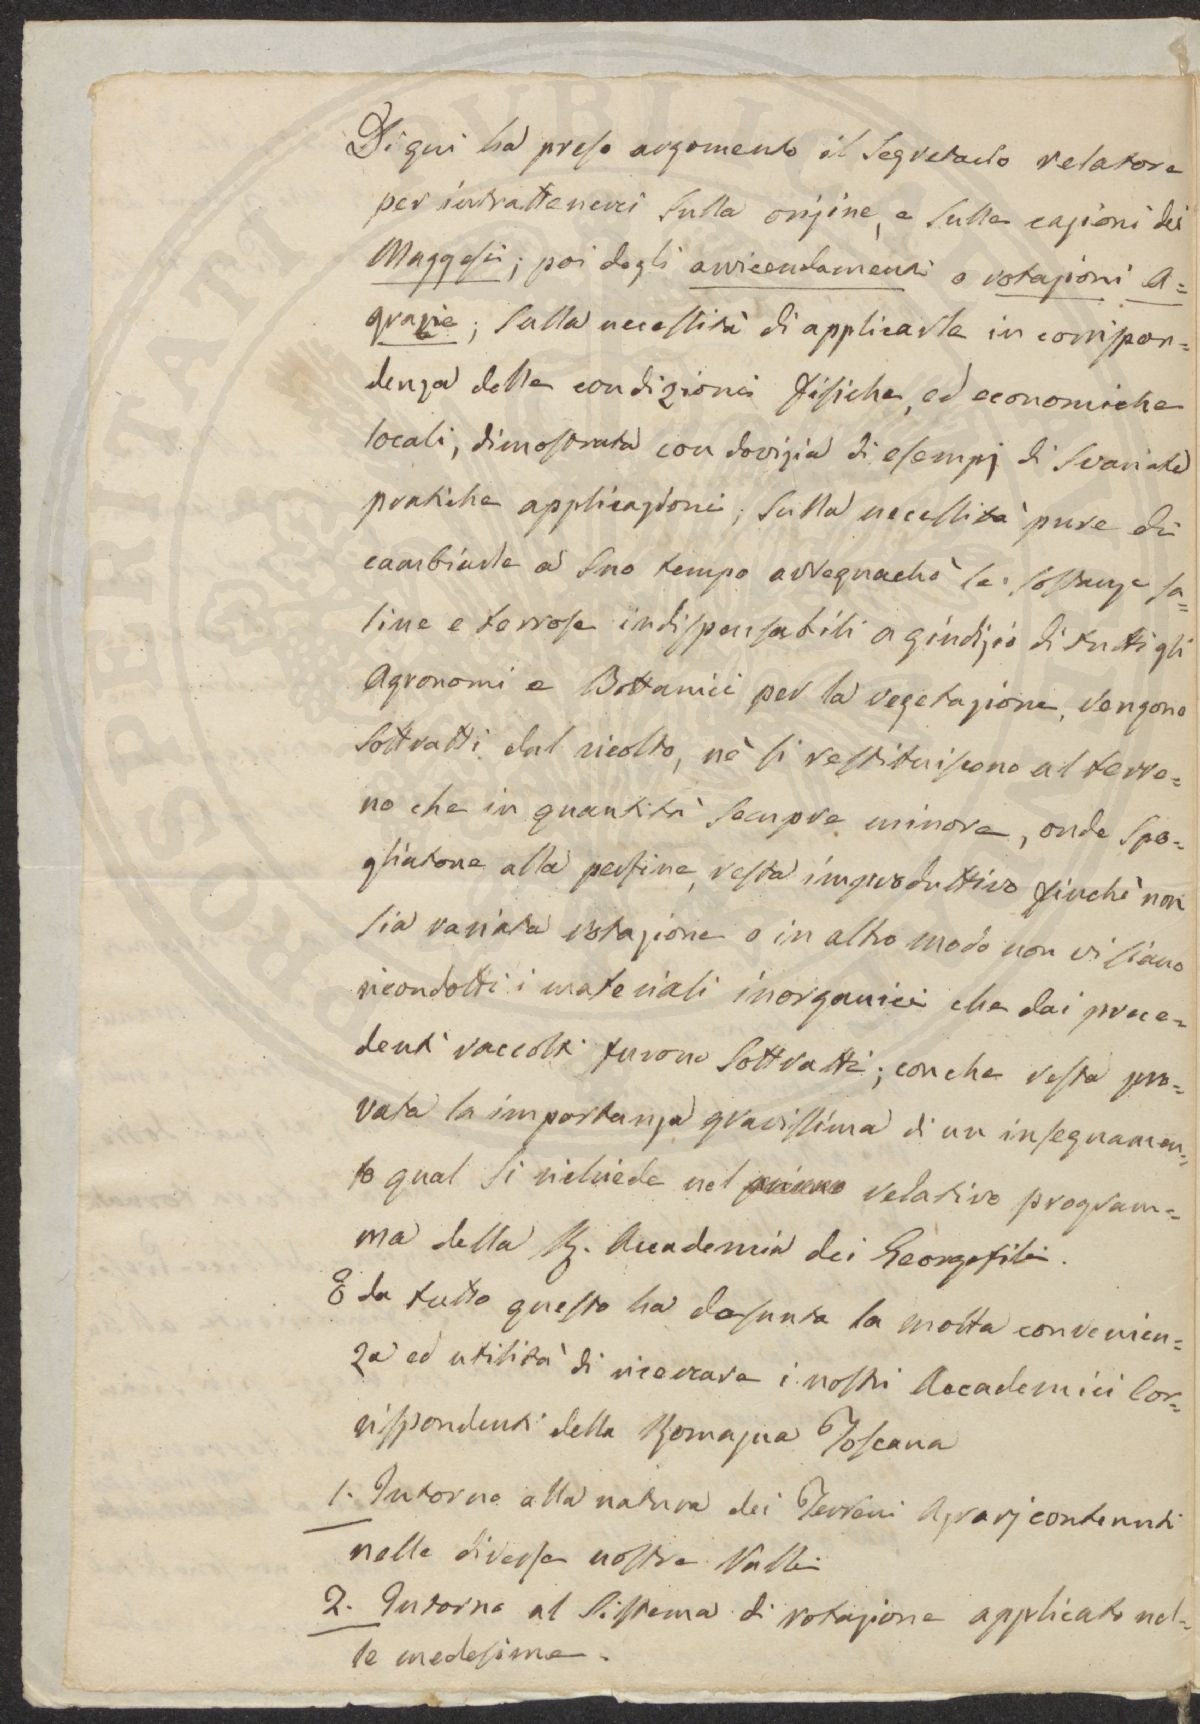 Di qui ha preso argomento il Segretario relatore
per intrattenerci sulla origine, e sulle cagioni dei
Maggesi; poi degli avvicendamenti o rotazioni A=
grarie; sulla necessità di applicarle in corrispon=
denza delle condizioni fisiche, ed economiche
locali, dimostrata con dovizia di esempj di svariate
pratiche applicazioni; sulla necessità pure di
cambiarle a suo tempo avvegnachè le sostanze sa=
line e terrose indispensabili a giudizio di tutti gli
Agronomi e Bottanici per la vegetazione, vengono
sottratti dal ricolto, nè si restituiscono al terre=
no che in quantità sempre minore, onde spo=
gliatone alla perfine, resta improduttivo finchè non
sia variata rotazione o in altro modo non vi siano
ricondotti i materiali inorganici che dai prece=
denti raccolti furono sottratti; con che resta pro=
vata la importanza gravissima di un insegnamen=
to qual si richiede nel relativo program=
ma della R. Accademia dei Georgofili.
E da tutto questo ha desunta la molta convenien=
za ed utilità di ricercare i nostri Accademici Cor=
rispondenti della Romagna Toscana
1. Intorno alla natura dei Terreni Agrarj contenuti
nelle diverse nostre Valli
2. Intorno al Sistema di rotazione applicato nel=
le medesime.
PUBLICI